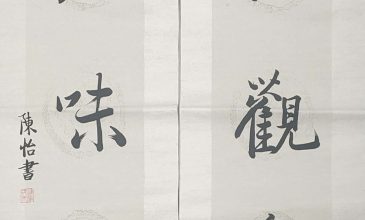 觀
味
陳怡書